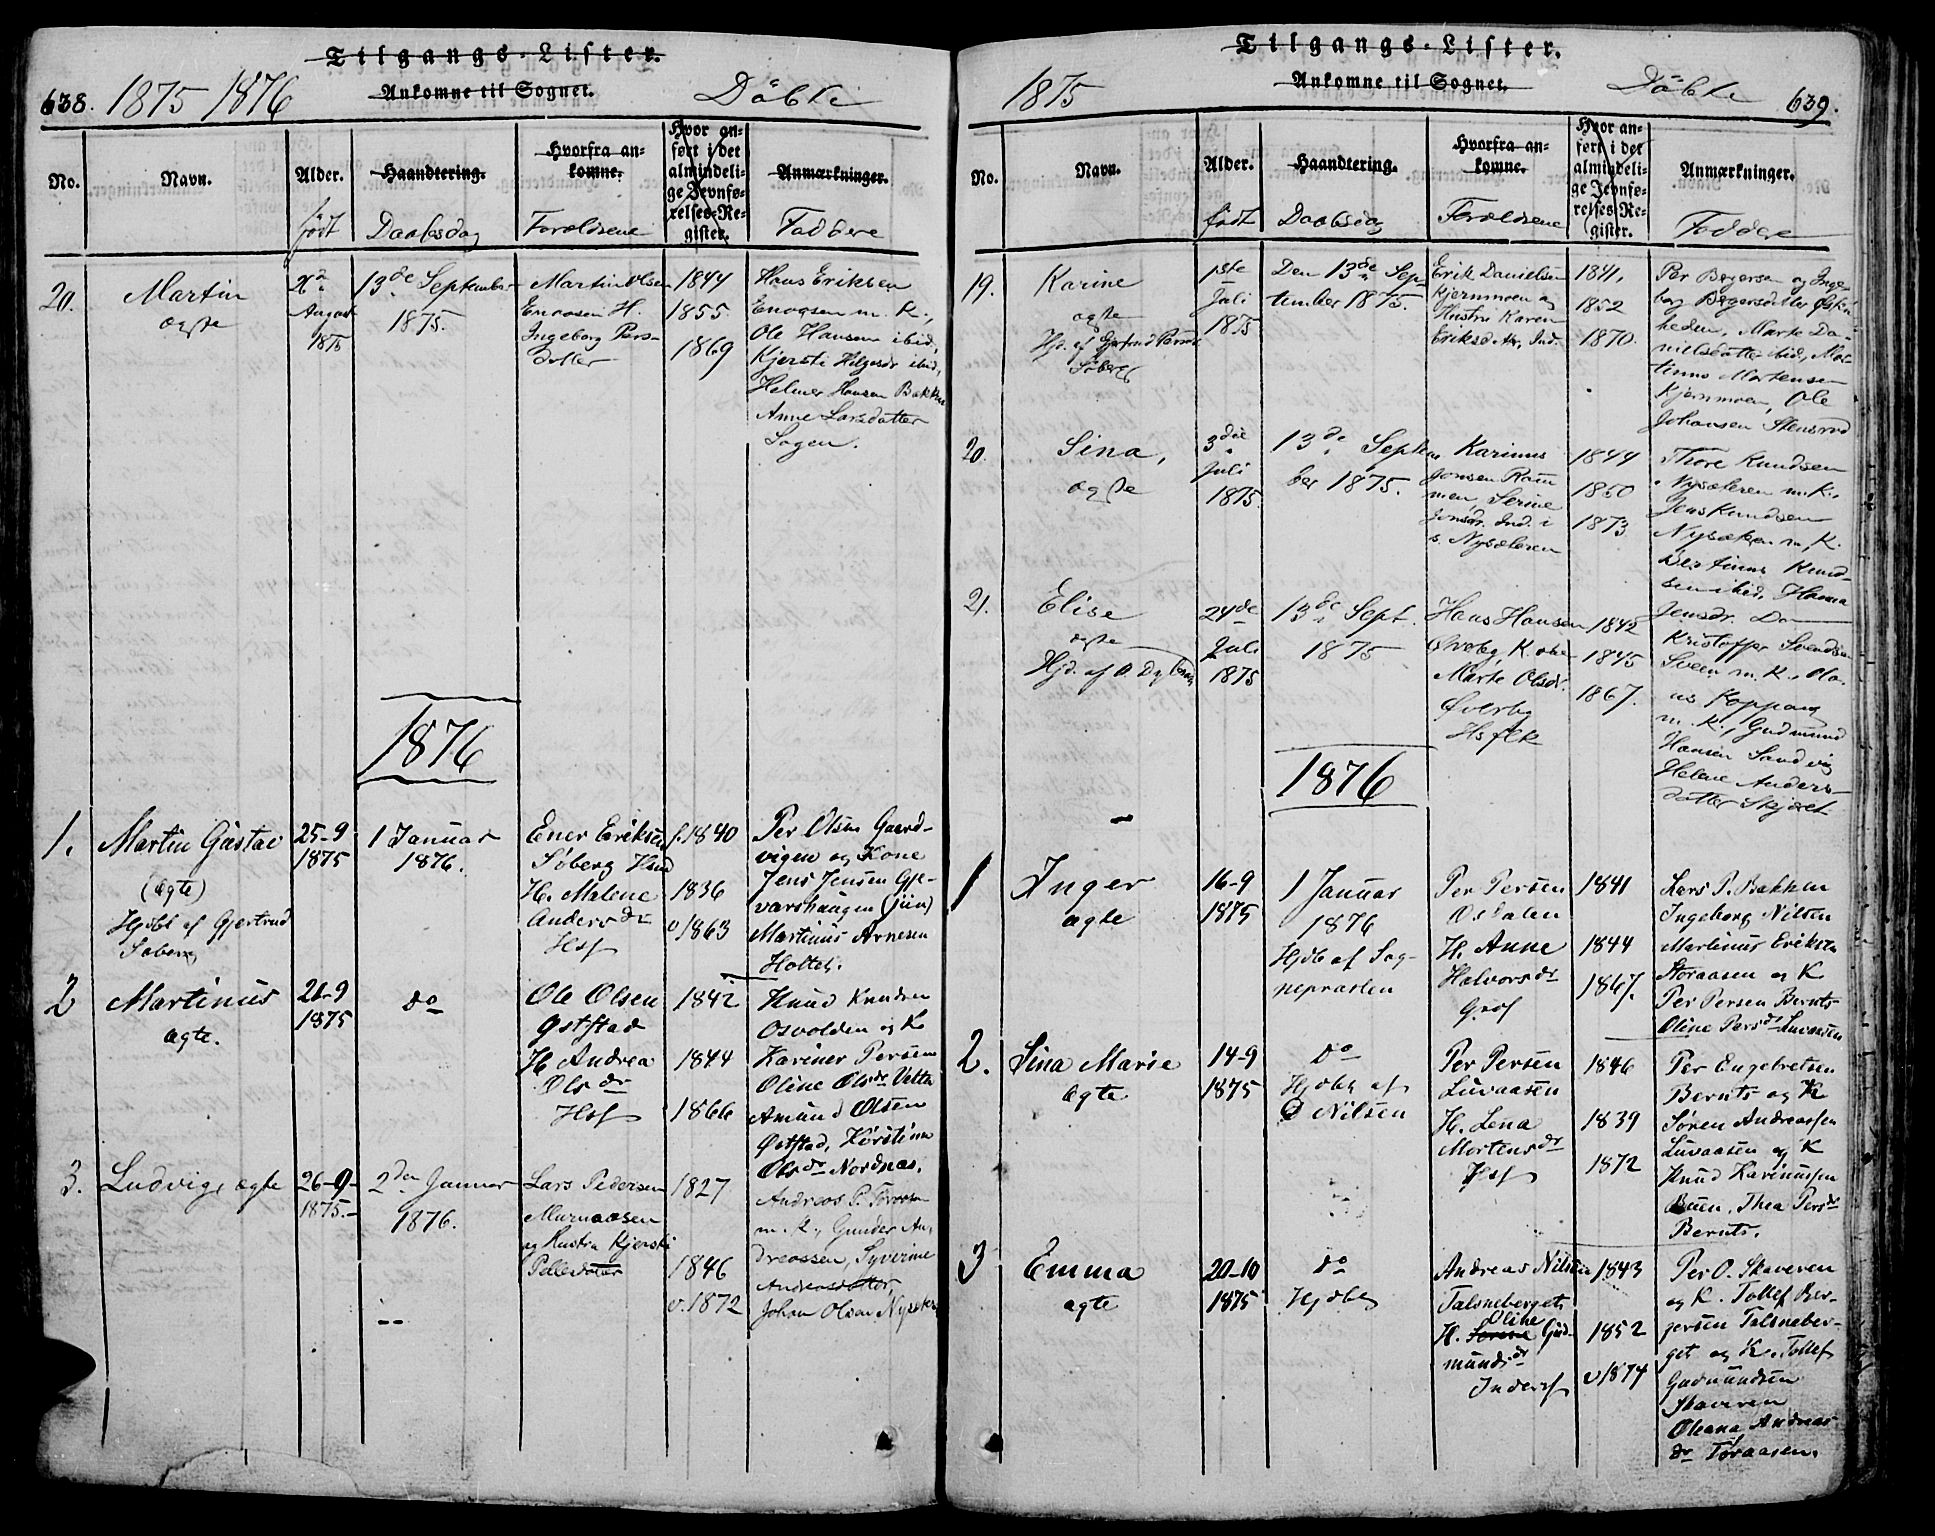 638. 1875 1876
Tilgangs-Lister.
Ankomne til Sognet.
Döbte
No.
Navn.
Alder.
født
Haandtering.
Daabsdag
Hvorfra ankomne.
Forældrene
Hvor an-
ført i det
almindeli-
ge Jevnfø-
relses-Re-
gister.
Anmærkninger.
Faddere
20.
Martin
ægte
2de
August
1875
13de September
1875.
Martin Olsen
H.
Ingeborg Pers-
datter
1844
1855
1869
Hans Eriksen
Enogsen m. K.,
Ole Hansen ibid,
Kjersti Helgesdr ibid,
Helmer Hansen Bakken
Anne Larsdatter
Sagen.
1876
1.
Martin Gustav
(ægte)
Hjdbt af Gjertrud
Søberg
25-9
1875
1 Januar
1876.
Ener Eriksen
Söberg Hsmd
H. Malene
Anders dr
Hsf
f. 1840
1836
v 1863
Per Olsen Gaard-
vigen og Kone
Jens Jensen Gje-
varshaugen (jün)
Martinus Arnesen
Holtet.
2
Martinus
ægte.
21-9
1875
do
Ole Olsen
Øststad
H. Andrea
Ols dr
Hsf
1842
1844
1866
Knud Knudsen
Osvolden og K
Kariner Persen
Oline Olsdr Vetta
Amund Olsen
Øststad, Kirstine
Olsdr Nordnæs.
3.
Ludvig, ægte
26-9-
1875.-
2den Januar
1876.
Lars Pedersen
Murnaasen
og Hustru Kjersti
Pelledatter
1827
1846
v. 1872
Andreas P.
m. K., Gunder An-
dreassen, Syverine
Andersdatter,
Johan Olsen
1875
Tilgangs-Lister.
Ankomne til Sognet.
Döbte 639.
No.
Navn.
Alder.
født
Haandtering.
Daabsdag
Hvorfra ankomne.
Forældrene
Hvor an-
ført i det
almindeli-
ge Jevnfø-
relses-Re-
gister.
Anmærkninger.
Faddere
19.
Karine
ægte
Hjd. af Gjertrud
Søberg
1ste
Juli
1875
Den 13de Sep-
tember 1875.
Erik Danielsen
Kjernmoen og
Hustru Karen
Eriksdtr, Ind.
1841,
1852
1870.
Per Børgersen og Inge-
borg Børgersdatter
heden, Marte Da-
nielsdatter ibid, Mar-
tinus Mortensen
Kjernmoen, Ole
Johansen Stensrud
20.
Sina,
ægte
3die
Juli
1875
13de Septem
ber 1875.
Karinus
Jonsen
Serine
Jonsdr. Ind. i
s. Nysæteren
1844
1850
1873
Thore Knudsen
Nysæteren m. K.,
Jens Knudsen
Nysæteren m. K.
Bertinus Knud-
sen ibid, Hanna
Jensdr. Do
21.
Elise
ægte
Hjd. af O.
24de
Juli
1875
13de Sept.
1875
Hans Hansen
Øverby, K.
Marte Olsdr.
Øverby
Hsflk
1842
1845
1867.
Kristoffer Svendsen
Sveen m. K., Ola-
us Koppang
m. K., Gudmund
Hansen Sandvig
Helene Anders-
datter Skjæret
1876
1
Inger
ægte
16-9
1875
1 Januar
1876
Hjdb af Sog-
nepræsten
Per Persen
Osdalen
H. Anne
Halvorsdr
Grdf
1841
1844
1867.
Lars P. Bakken
Ingeborg Nilsen
Martinus Eriksen
Storaasen og K
Per Persen Bernts
Oline Persdr Luvaasen
2.
Sina Marie
ægte
14-9
1875
do
Hjdbg af
D Nilsen
Per Persen
Luvaasen
H. Lena
Mortensdr
Hsf
1846
1839
1872
Per Engebretsen
Bernts og K
Søren Andreassen
Luvaasen og K
Knud Karinussen
Buen, Thea Persdr
Bernts.
3
Emma
ægte
20-10
1875
do
Hjdbg
Andreas Nilsen
Talsneberget,
Oline
H. Serene Gud-
mundsdr
Indersf
1843
1852
v 1874
Per O. Skaveren
og K. Tollef Ber-
gersen Talsneber-
get og K. Tollef
Gudmundsen
Skaveren
Oleana Andreas
dr Toraasen.